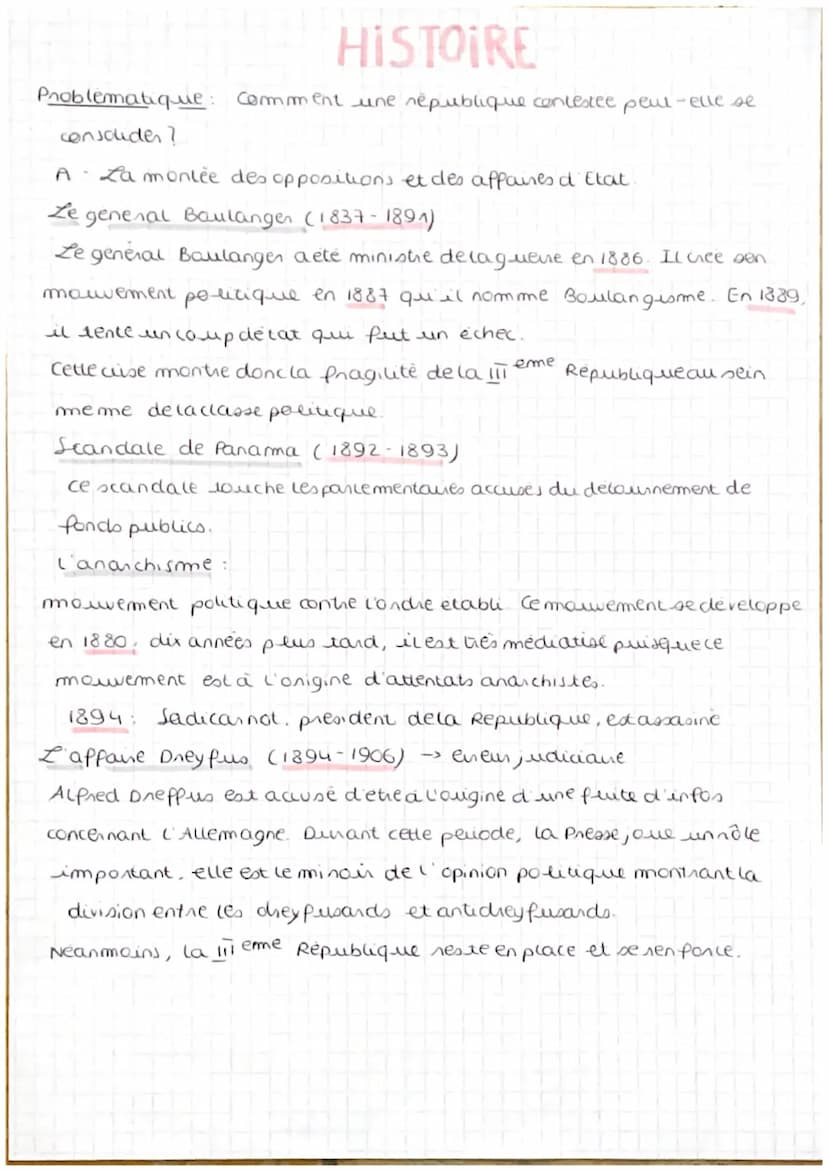 HISTOIRE
Problematique : Comment une république contestée peut-elle se
consolider ?
A - La montée des oppositions et des affaires d'Etat.
Le general Boulanger (1837-1891)
Le général Boulanger a été ministre de la guerre en 1886. Il crée son
mouvement politique en 1887 qu'il nomme Boulangisme. En 1889,
il tente un coup d'état qui fut un échec.
Cette crise montre donc la fragilité de la III eme République au sein
meme de la classe politique.
Scandale de Panama (1892-1893)
ce scandale touche les parlementaires accusés du détournement de
fonds publics.
L'anarchisme :
mouvement politique contre l'ordre etabli Ce mouvement se développe
en 1880. dix années plus tard, il est très médiatisé puisque ce
mouvement est à l'origine d'attentats anarchistes.
1894 : Sadi carnot, président de la République, est assasiné
L'affaire Dreyfus (1894-1906) → erreur judiciaire
Alfred Dreffus est accusé d'être à l'origine d'une fuite d'infos
concernant l'Allemagne. Durant cette période, la Presse joue un rôle
important. elle est le miroir de l'opinion politique montrant la
division entre les dreyfusards et antidreyfusards.
Néanmoins, la III eme République reste en place et se renforce.